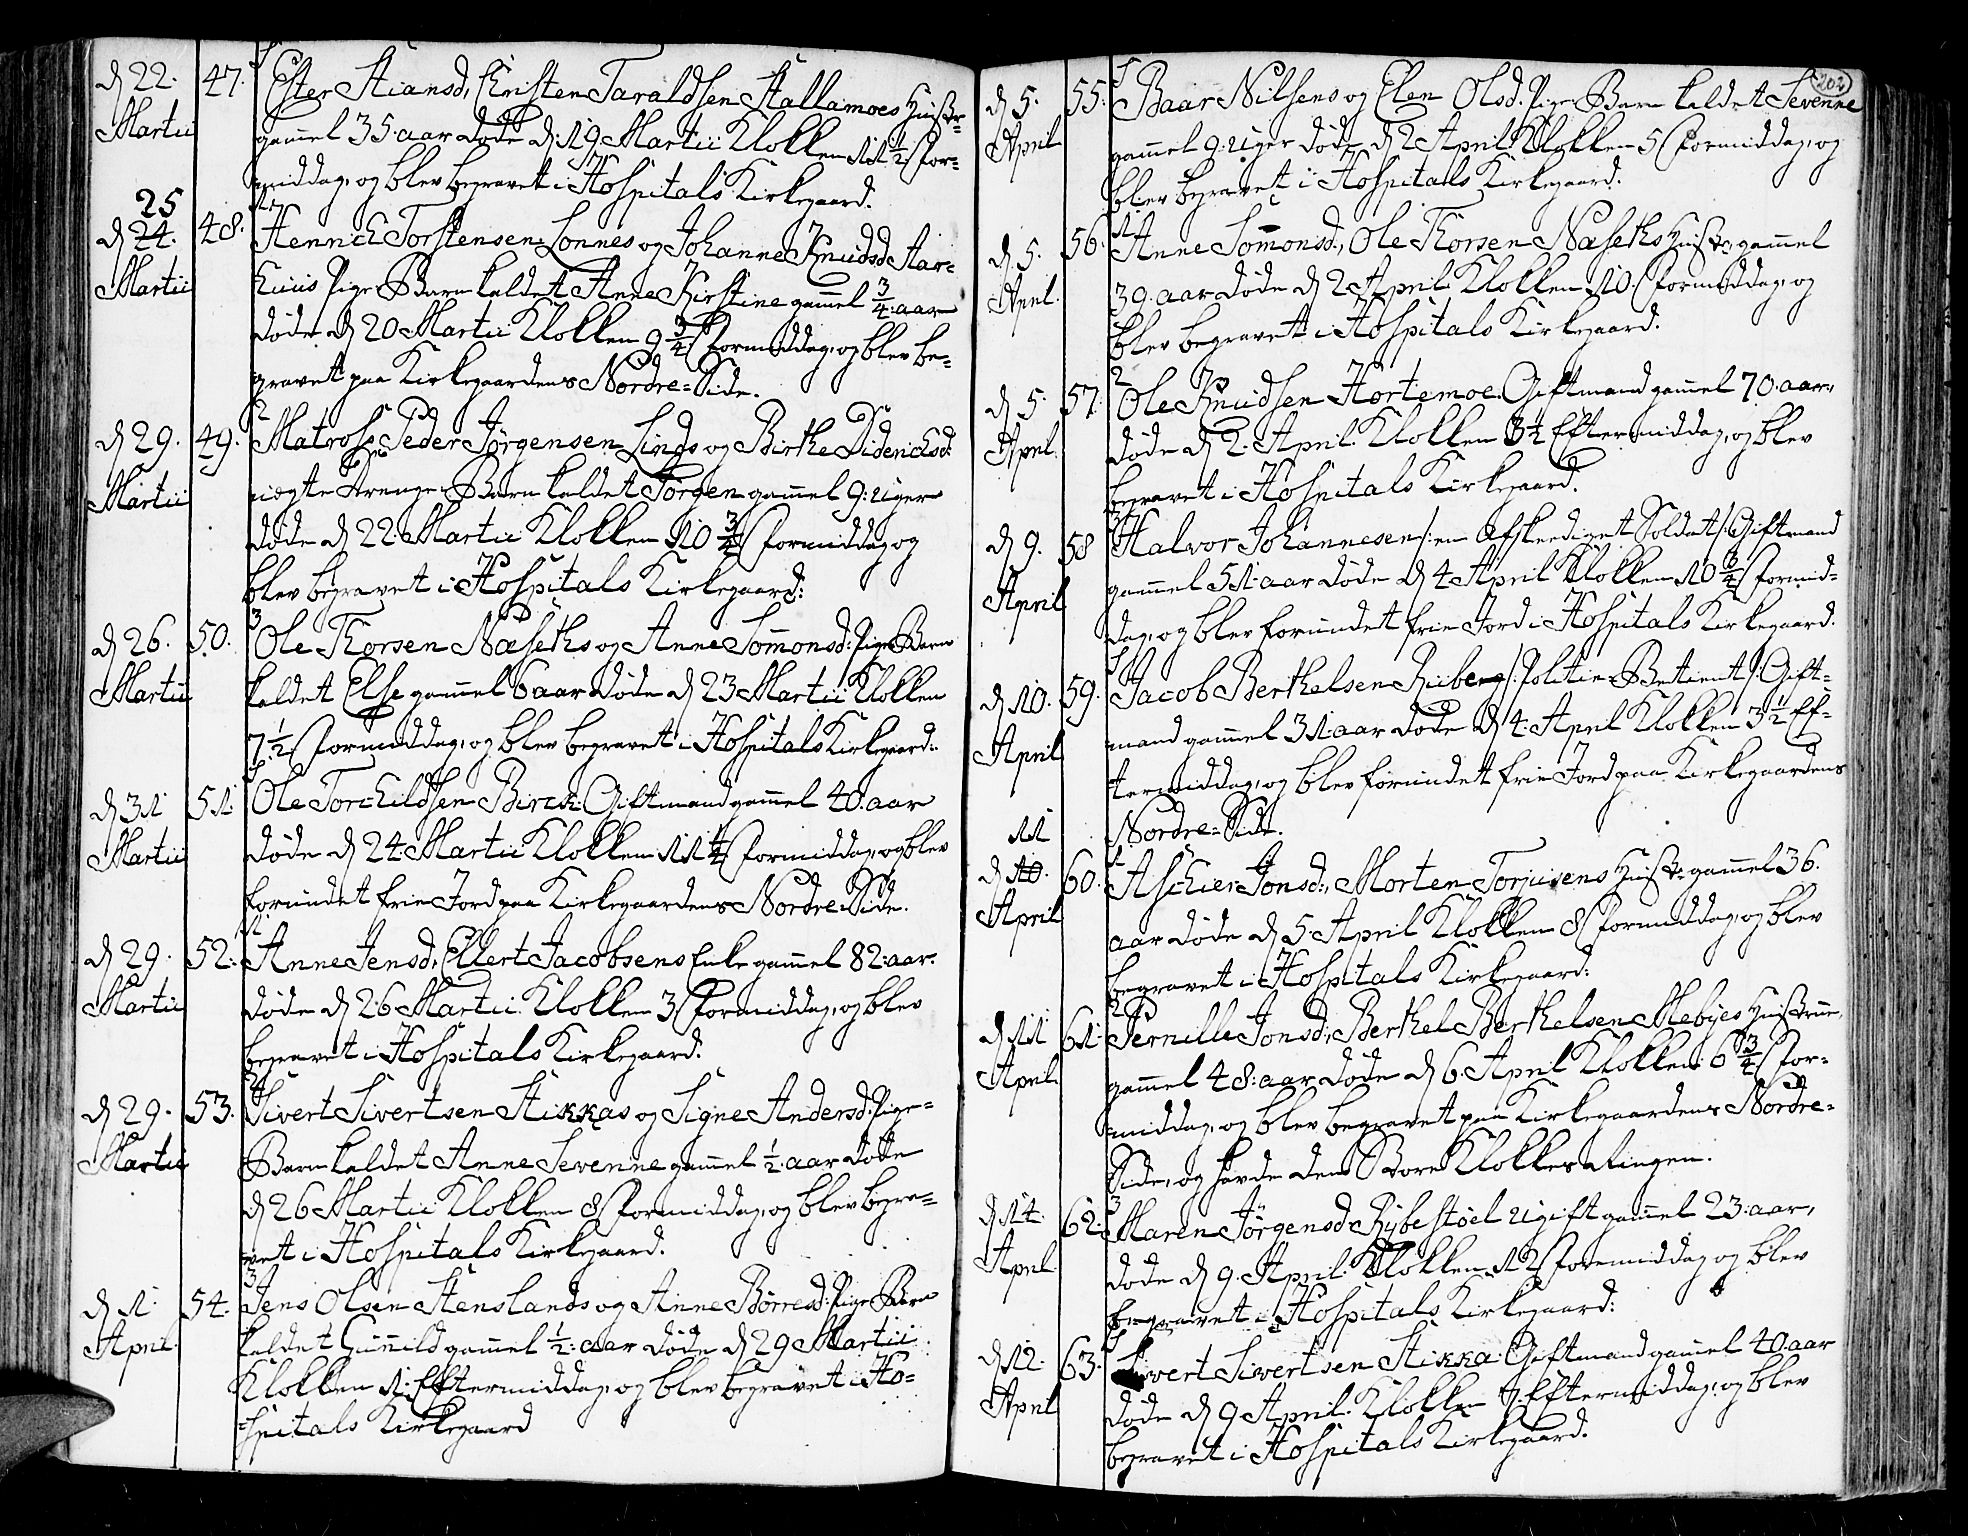 d 22. Martii 47. Ester Stiansd, Christen Taraldsen Stallamoes Hustr.
gammel 35. aar døde d: 19 Martii Klokken 11 1/2 for-
middag, og blev begravet i Hospitals Kirkegaard.
d 25 24. Martii 48. Hennich Torstensen Lonnes og Johanne Knudsd Aar-
huus Pige Barn kaldet Anne Kirstine gamel 3/4: aar
døde d 20 Martii Klokken 9 3/4 formiddag, og blev be-
gravet paa Kirkegaardens Nordre-Side.
d 29. Martii 49. Matros Peder Jørgensen Linds og Birthe Diderichsd:
uægte Drenge Barn kaldet Jørgen gamel 9: uger
døde d 22. Martii Klokken 10 3/4 formiddag og
blev begravet i Hospitals Kirkegaard:
d 26. Martii 50. Ole Thorsen Næseths og Anne Somonsd: Pige Barn
kaldet Else gamel 6 aar døde d 23 Martii Klokken
7 1/2 formiddag, og blev begravet i Hospitals Kirkegaard:
d 31 Martii 51. Ole Torchildsen Birck Giftmand gamel 40. aar
døde d 24. Martii Klokken 11 1/2 formiddag, og blev
forundet frie Jord paa Kirkegaardens Nordre-Side.
d 29. Martii 52. Anne Jensd, Ellert Jacobsens Enke gamel 82: aar.
døde d 26 Martii Klokken 3 formiddag, og blev
begravet i Hospitals Kirkegaard.
d 29. Martii 53. Sivert Sivertsen Stikkas og Signe Andersd. Pige-
Barn kaldet Anne Sevenne gamel 1/2. aar døde
d 26 Martii Klokken 8 formiddag, og blev begra-
vet i Hospitals Kirkegaard.
d 1. April. 54. Jens Olsen Stenslands og Anne Børresd: Pige Barn
kaldet Gunnild gamel 1/2: aar døde d 29 Martii
Klokken 1. Eftermiddag, og blev begravet i Ho-
spitals Kirkegaard
202
d 5. April 55. Baar Nilsens og Elen Olsd. Pige Barn kaldet Sevenne
gamel 9: uger døde d 2 April Klokken 5 formiddag, og
blev begravet i Hospitals Kirkegaard.
d 5. April. 56. Anne Somonsd., Ole Thorsen Næseths Hustr. gamel
39. aar døde d 2 April Klokken 10. formiddag, og
blev begravet i Hospitals Kirkegaard.
d 5. April. 57. Ole Knudsen Hortemoe. Giftmand gamel 70. aar.
døde d 2. April. Klokken 3 1/2 Eftermiddag, og blev
begravet i Hospitals Kirkegaard.
d 9. April 58 Halvor Johannesen /: en Afskediget Soldat /: Giftmand
gammel 51: aar døde d 4 April Klokken 10 3/4 formid-
dag, og blev forundet frie Jord i Hospitals Kirkegaard.
d 10. April 59. Jacob Berthelsen Riiberg /: Politie-Betient /: Gift-
mand gammel 31: aar døde d 4. April Klokken 3 1/2 Ef-
termiddag, og blev forundet frie Jord paa Kirkegaardens
Nordre-Side.
d 11 10. April 60. Aschier Jonsd., Morten Torjusens Hustr. gamel 36.
aar døde d 5. April Klokken 8 formiddag, og blev
begravet i Hospitals Kirkegaard:
d 11 April. 61. Pernille Jonsd, Berthel Berthelsen Mebyes Hustrue,
gamel 48: aar døde d 6. April Klokken 6 3/4 for-
middag, og blev begravet paa Kirkegaardens Nordre-
Side, og havde den Store Klokkes Ringen.
d 14. April 62: Maren Jørgensd Rybestøel ugift gamel 23: aar,
døde d 9. April. Klokken 12 Formiddag og blev
begravet i Hospitals Kirkegaard:
d 12. April 63. Sivert Sivertsen Stikka Giftmand gamel 40. aar
døde d 9 April. Klokken 7. Eftermiddag, og blev
begravet i Hospitals Kirkegaard.